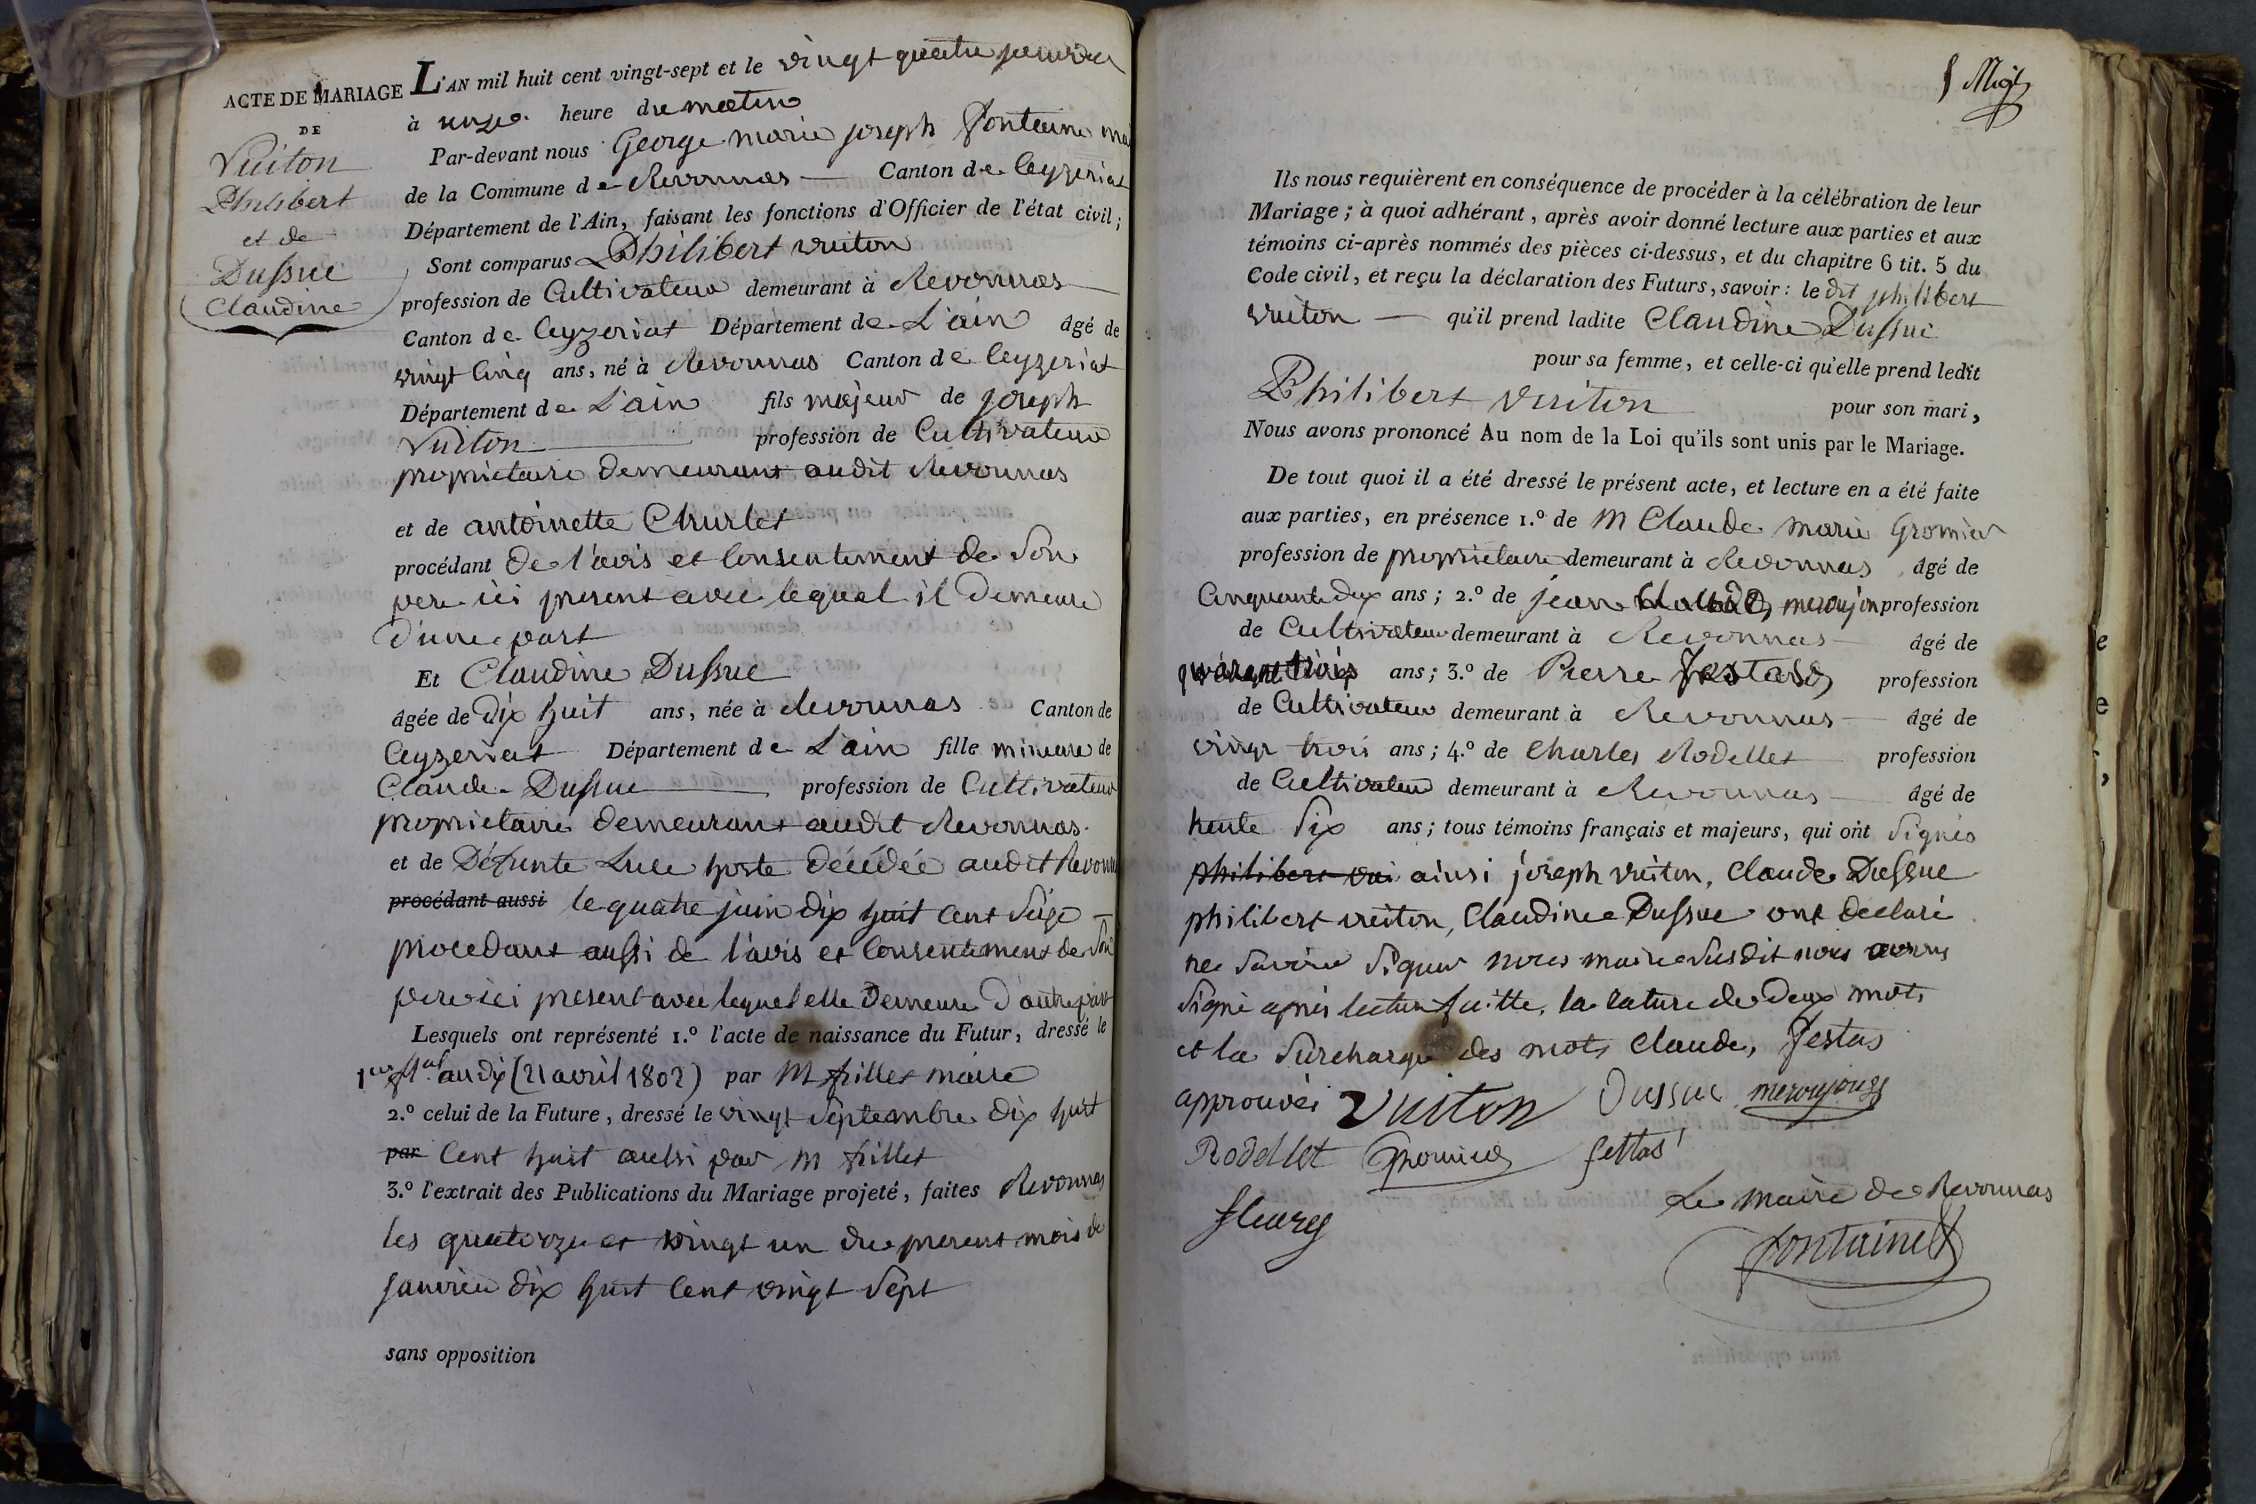 ACTE DE MARIAGE
DE
Vuiton
Philibert
et de
Dussuc
Claudine
L'AN mil huit cent vingt-sept et le vingt quatre janvier
à onze heure du matin
Par-devant nous George marie joseph fontaine
de la Commune de Revonnas Canton de Ceyzeriat
Département de l'Ain, faisant les fonctions d'Officier de l'état civil;
Sont comparus Philibert vuiton
profession de Cultivateur demeurant à Revonnas
Canton de Ceyzeriat Département de L'ain âgé de
vingt Cinq ans, né à Revonnas Canton de Ceyzeriat
Département de L'ain fils majeur de joseph
Vuiton profession de Cultivateur
proprietaire demeurant audit Revonnas
et de antoinette Churlet
procédant de l'avis et Consentement de Son
pere ici present avec lequel il Demeure
d'une part
Et Claudine Dussuc
âgée de Dix huit ans, née à Revonnas Canton de
Ceyzeriat Département de L'ain fille mineure de
Claude Dussuc profession de Cultivateur
proprietaire demeurant audit Revonnas
et de Défunte Luce hoste décédée audit Revonnas
procédant aussi le quatre juin dix huit Cent Seize
procedant aussi de l'avis et Consentement de Son
pere ici present avec lequel elle Demeure D'autre part
Lesquels ont représenté 1.º l'acte de naissance du Futur, dressé le
1er fal an dix (21 avril 1802) par M frillet maire
2.º celui de la Future, dressé le vingt Septembre dix huit
par Cent huit aussi par M frillet
3.º l'extrait des Publications du Mariage projeté, faites Revonnas
les quatorze et vingt un du present mois de
janvier dix huit Cent vingt Sept
sans opposition
Ils nous requièrent en conséquence de procéder à la célébration de leur
Mariage; à quoi adhérant, après avoir donné lecture aux parties et aux
témoins ci-après nommés des pièces ci-dessus, et du chapitre 6 tit. 5 du
Code civil, et reçu la déclaration des Futurs, savoir: le dit philibert
vuiton qu'il prend ladite Claudine Dussuc
pour sa femme, et celle-ci qu'elle prend ledit
Philibert vuiton pour son mari,
Nous avons prononcé Au nom de la Loi qu'ils sont unis par le Mariage.
De tout quoi il a été dressé le présent acte, et lecture en a été faite
aux parties, en présence 1.º de M Claude marie Gromier
profession de proprietaire demeurant à Revonnas âgé de
Cinquante deux ans; 2.º de jean Claude meroujon profession
de Cultivateur demeurant à Revonnas âgé de
quarante trois ans; 3.º de Pierre festas profession
de Cultivateur demeurant à Revonnas âgé de
vingt trois ans; 4.º de Charles Rodellet profession
de Cultivateur demeurant à Revonnas âgé de
trente Six ans; tous témoins français et majeurs, qui ont Signés
philibert vui ainsi joseph vuiton, Claude Dussuc
philibert vuiton, Claudine Dussuc ont declaré
ne Savoir Signer nous maire Susdit nous avons
Signé après lecture faitte. la rature de deux mots
et la Surcharge des mots Claude, festas
approuvés Vuiton Dussuc meroujon
Rodellet Gromier festas
fleury
Le maire de Revonnas
fontaine